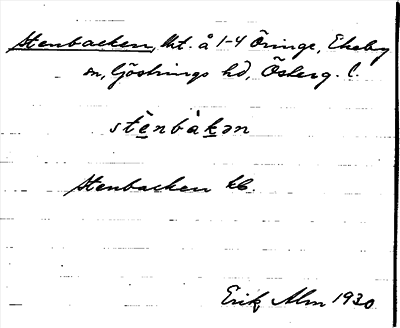 Stenbacken, tht. å 1-4 Öringe, Ekeby
sn, Göstrings hd, Österg. l.
stènbàkən
Stenbacken kb.
Erik Alm 1930